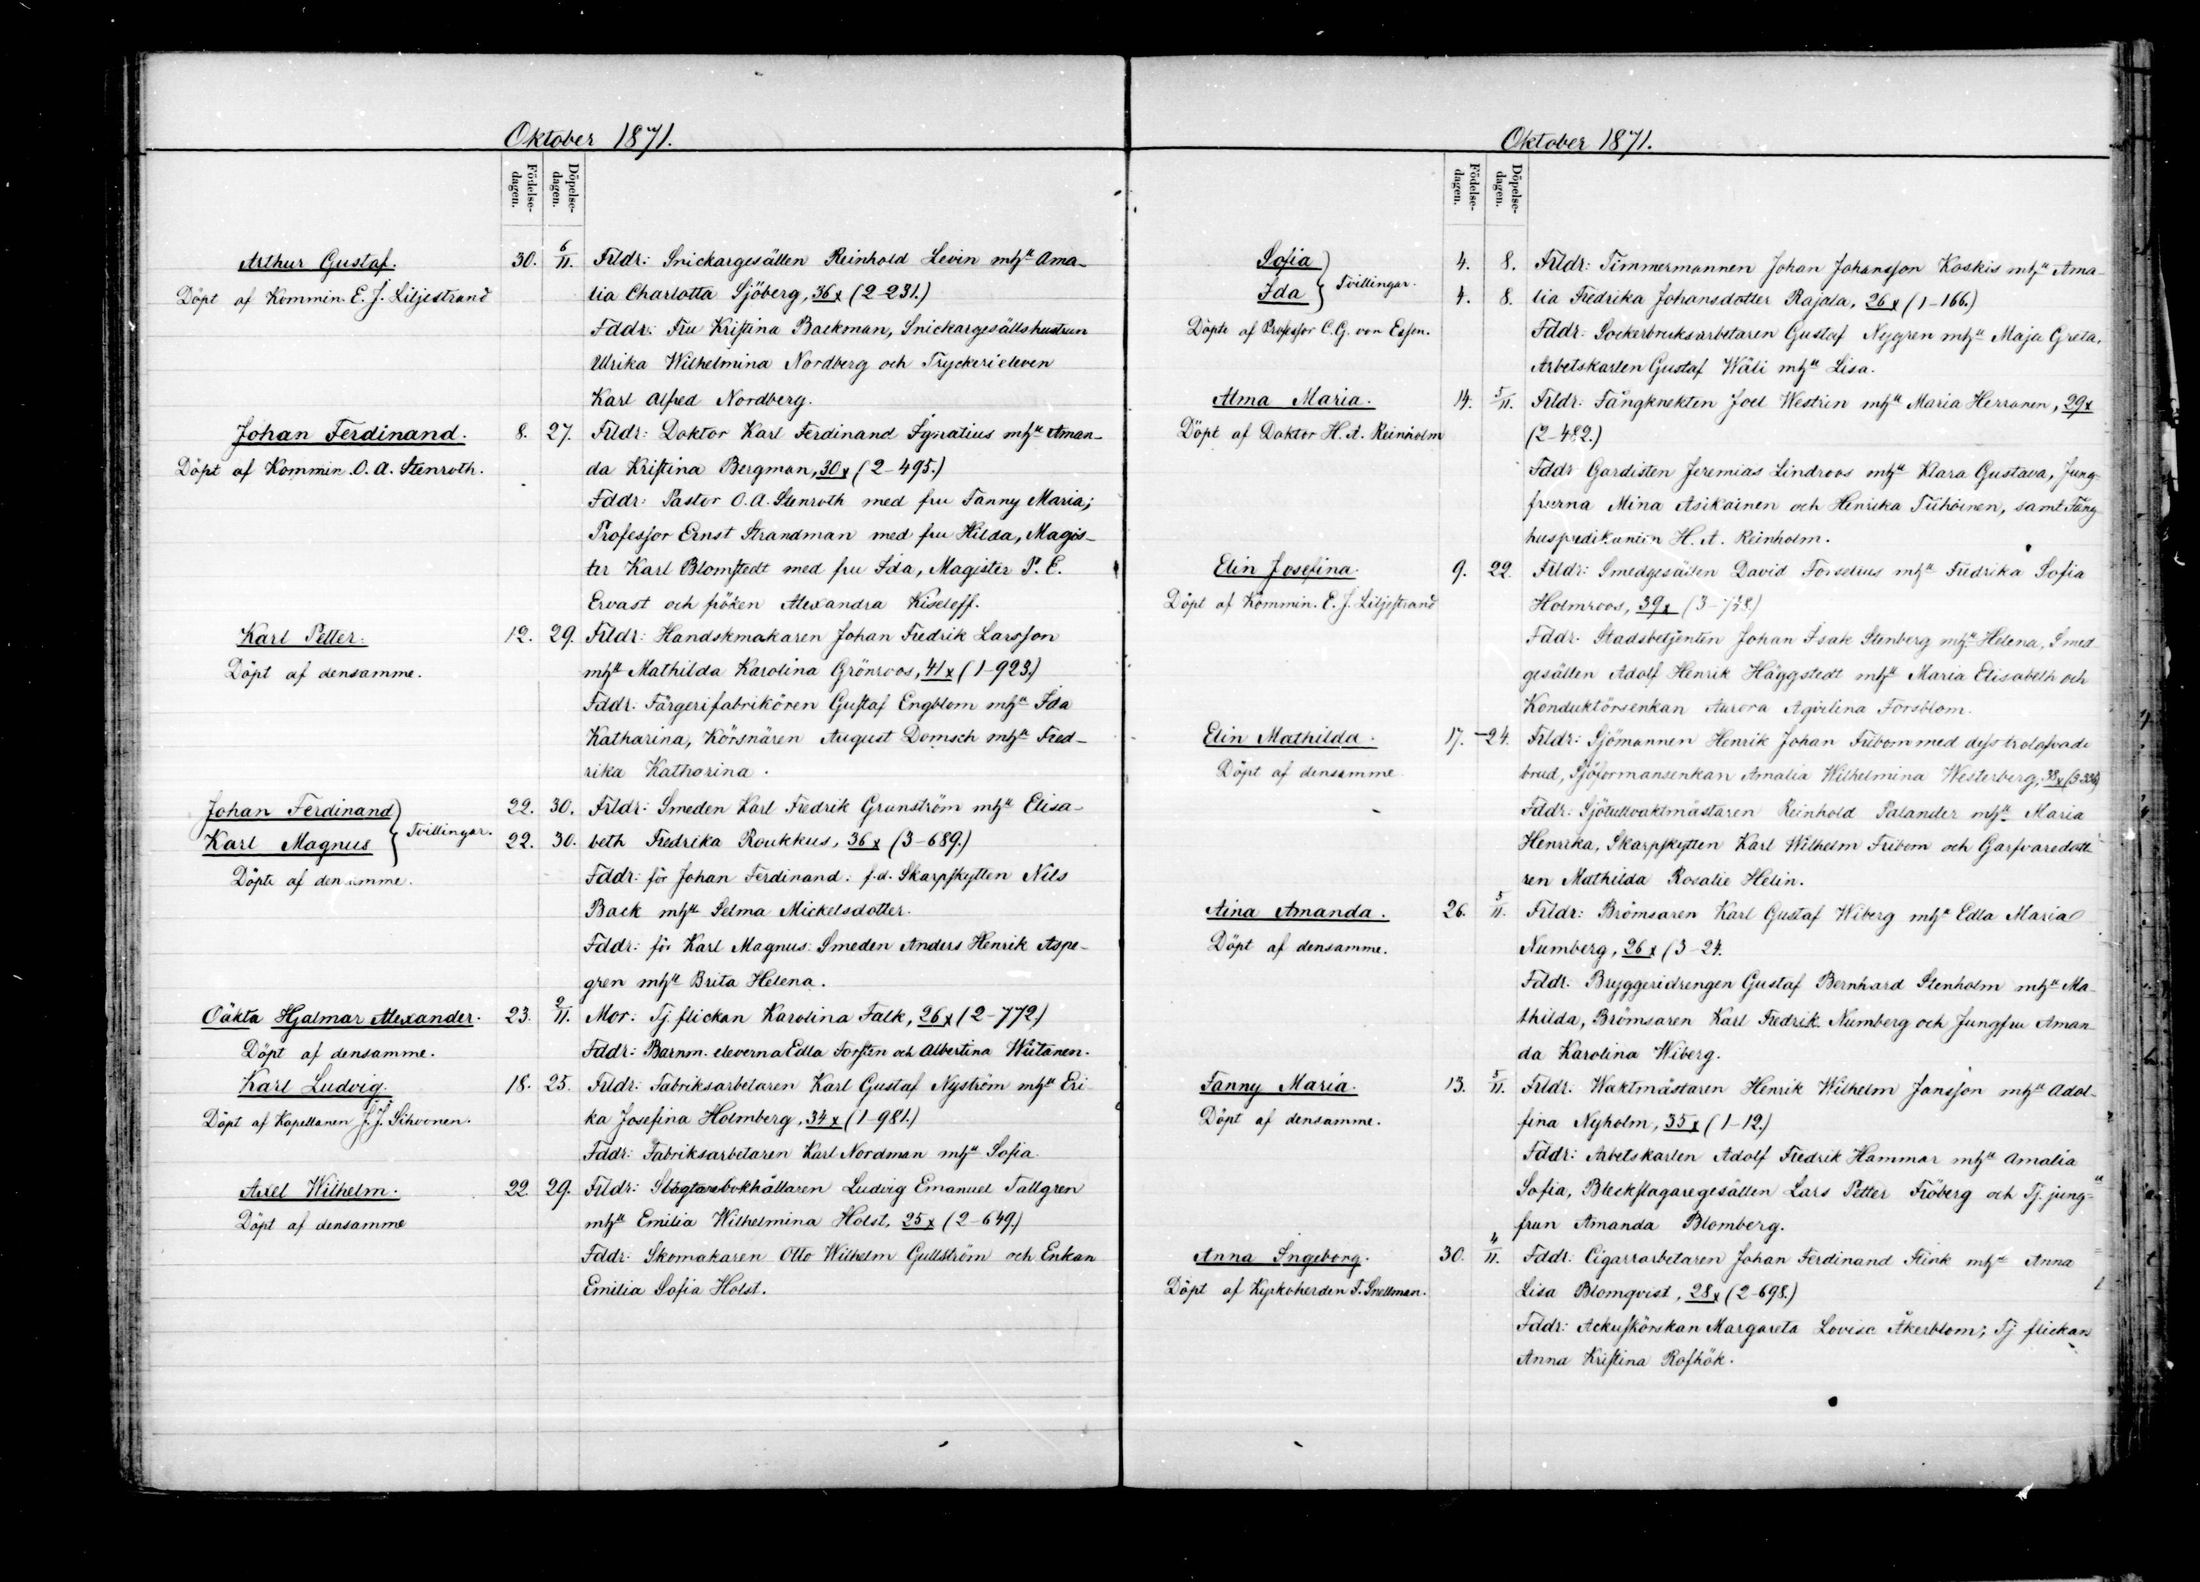 Oktober 1871.
Födelse-dagen. Döpelse-dagen.
Arthur Gustaf. 30. 6/11. Frldr: Snickargesällen Reinhold Levin mhu Ama-
Döpt af Kommin. E. J. Liljestrand lia Charlotta Sjöberg, 36 x (2-231.)
Fddr: Fru Kristina Backman, Snickargesällshustrun
Ulrika Wilhelmina Nordberg och Tryckerieleven
Karl Alfred Nordberg.
Johan Ferdinand. 8. 27. Frldr: Doktor Karl Ferdinand Ignatius mhu Aman-
Döpt af Kommin. O. A. Stenroth. da Kristina Bergman, 30 x (2-495.)
Fddr: Pastor O. A. Stenroth med fru Fanny Maria;
Professor Ernst Strandman med fru Hilda, Magis-
ter Karl Blomstedt med fru Ida, Magister P. E.
Ervast och fröken Alexandra Kiseleff.
Karl Petter. 12. 29. Frldr: Handskmakaren Johan Fredrik Larsson
Döpt af densamme. mhu Mathilda Karolina Grönroos, 41 x (1-923.)
Fddr: Färgerifabrikören Gustaf Engblom mhu Ida
Katharina, Körsnären August Domsch mhu Fred-
rika Katharina.
Johan Ferdinand } Tvillingar. 22. 30. Frldr: Smeden Karl Fredrik Granström mhu Elisa-
Karl Magnus 22. 30. beth Fredrika Roukkus, 36 x (3-689.)
Döpte af densamme. Fddr: för Johan Ferdinand: f.d. Skarpskytten Nils
Back mhu Selma Mickelsdotter.
Fddr: för Karl Magnus: Smeden Anders Henrik Aspe-
gren mhu Brita Helena.
Oäkta Hjalmar Alexander. 23. 2/11. Mor: Tj. flickan Karolina Falk, 26 x (2-772)
Döpt af densamme. Fddr: Barnm. eleverna Edla Forsten och Albertina Wiitanen.
Karl Ludvig. 18. 25. Frldr: Fabriksarbetaren Karl Gustaf Nyström mhu Eri-
Döpt af Kapellanen J. J. Sihvonen. ka Josefina Holmberg, 34 x (1-981.)
Fddr: Fabriksarbetaren Karl Nordman mhu Sofia.
Axel Wilhelm. 22. 29. Frldr: Slagtarebokhållaren Ludvig Emanuel Tallgren
Döpt af densamme mhu Emilia Wilhelmina Holst, 25 x (2-649.)
Fddr: Skomakaren Otto Wilhelm Gullström och Enkan
Emilia Sofia Holst.
Oktober 1871.
Födelse-dagen. Döpelse-dagen.
Sofia } Tvillingar. 4. 8. Frldr: Timmermannen Johan Johansson Koskis mhu Ama-
Ida 4. 8. lia Fredrika Johansdotter Rajala, 26 x (1-166.)
Döpte af Professor C. G. von Essen. Fddr: Sockerbruksarbetaren Gustaf Nygren mhu Maja Greta,
Arbetskarlen Gustaf Wäli mhu Lisa.
Alma Maria. 14. 5/11. Frldr: Fångknekten Joel Westrin mhu Maria Herranen, 29 x
Döpt af Doktor H. A. Reinholm (2-482.)
Fddr Gardisten Jeremias Lindroos mhu Klara Gustava, Jung-
fruerna Mina Asikainen och Henrika Tiihoinen, samt Fång-
huspredikanten H. A. Reinholm.
Elin Josefina. 9. 22. Frldr: Smedgesällen David Forselius mhu Fredrika Sofia
Döpt af Kommin. E. J. Liljestrand Holmroos, 39 x (3-738.)
Fddr. Stadsbetjenten Johan Isak Stenberg mhu Helena, Smed-
gesällen Adolf Henrik Häggstedt mhu Maria Elisabeth och
Konduktörsenkan Aurora Aqvilina Forsblom.
Elin Mathilda. 17. 24. Frldr: Sjömannen Henrik Johan Fribom med dess trolofvade
Döpt af densamme brud, Sjöformansenkan Amalia Wilhelmina Westerberg, 38 x
Fddr: Sjötullvaktmästaren Reinhold Palander mhu Maria
Henrika, Skarpskytten Karl Wilhelm Fribom och Garfvaredott-
ren Mathilda Rosalie Helin.
Aina Amanda. 26. 5/11. Frldr: Brömsaren Karl Gustaf Wiberg mhu Edla Maria
Döpt af densamme. Numberg, 26 x (3-24.
Fddr: Bryggeridrengen Gustaf Bernhard Stenholm mhu Ma-
thilda, Brömsaren Karl Fredrik Numberg och Jungfru Aman-
da Karolina Wiberg.
Fanny Maria. 13. 5/11. Frldr: Waktmästaren Henrik Wilhelm Jansson mhu Adol-
Döpt af densamme. fina Nyholm, 35 x (1-12.)
Fddr: Arbetskarlen Adolf Fredrik Hammar mhu Amalia
Sofia, Bleckslagaregesällen Lars Petter Fröberg och Tj. jung-
frun Amanda Blomberg.
Anna Ingeborg. 30. 4/11. Fddr: Cigarrarbetaren Johan Ferdinand Flink mhu Anna
Döpt af Kyrkoherden F. Snellman. Lisa Blomqvist, 28 x (2-698.)
Fddr: Ackuskörskan Margareta Lovisa Åkerblom; Tj. flickan
Anna Kristina Rofhök.